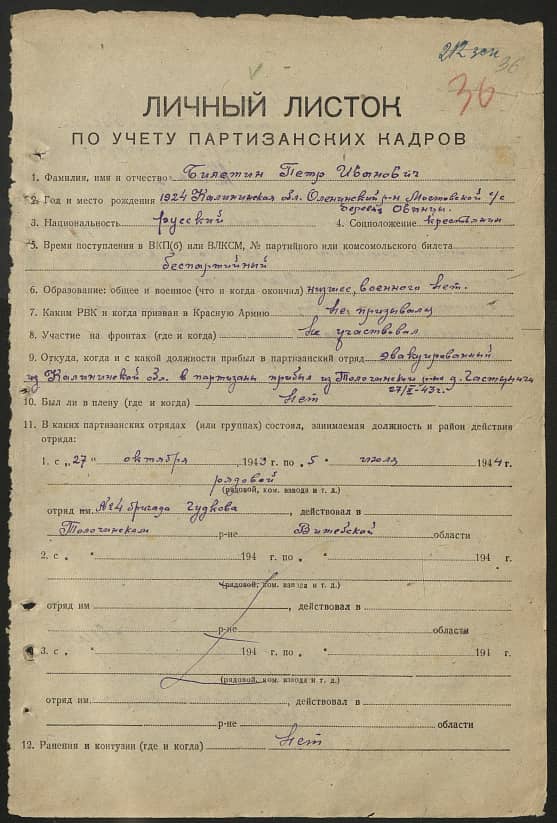 212 зап 36
36
ЛИЧНЫЙ ЛИСТОК
ПО УЧЕТУ ПАРТИЗАНСКИХ КАДРОВ
1. Фамилия, имя и отчество Билетин Петр Иванович
2. Год и место рождения 1924 Калининская обл. Оленинский р-н Мостовской с/с
деревня
3. Национальность русский 4. Соцположение крестьянин
5. Время поступления в ВКП(б) или ВЛКСМ, № партийного или комсомольского билета
беспартийный
6. Образование: общее и военное (что и когда окончил) низшее, военного нет.
7. Каким РВК и когда призван в Красную Армию Не призывался
8. Участие на фронтах (где и когда) Не участвовал
9. Откуда, когда и с какой должности прибыл в партизанский отряд эвакуированный
из Калининской обл. в партизаны прибыл из Толочинского р-на д.
27/X-43г.
10. Был ли в плену (где и когда) Нет
11. В каких партизанских отрядах (или группах) состоял, занимаемая должность и район действия
отряда:
1. с „27" октября 1943 г. по „5 " июля 1944 г.
рядовой
(рядовой, ком. взвода и т. д.)
отряд им. №4 бригада Гудкова, действовал в
Толочинском р-не Витебской области
2. с „ " 194 г. по „ " 194 г.
(рядовой, ком. взвода и т. д.)
отряд им , действовал в
р-не области
3. с „ " 194 г. по „ " 194 г.
(рядовой, ком. взвода и т. д.)
отряд им. , действовал в
р-не области
12. Ранения и контузии (где и когда) Нет